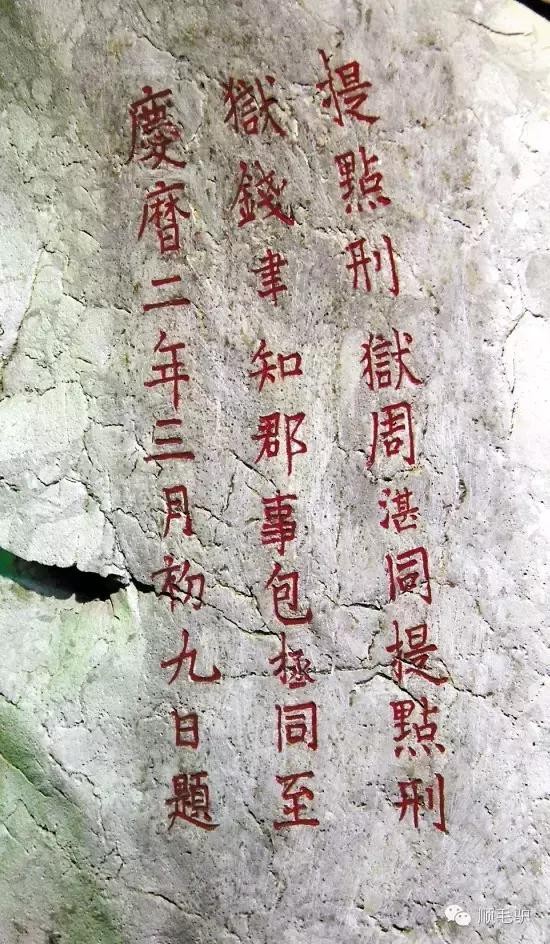 提點刑獄周湛同提點刑
獄錢聿知郡事包拯同至
慶曆二年三月初九日題
顺毛驴